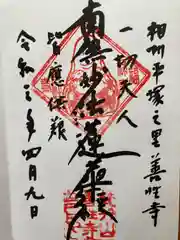 相州平塚之里善性寺
一切天人
南無妙法蓮華経
皆應供養
令和三年四月九日